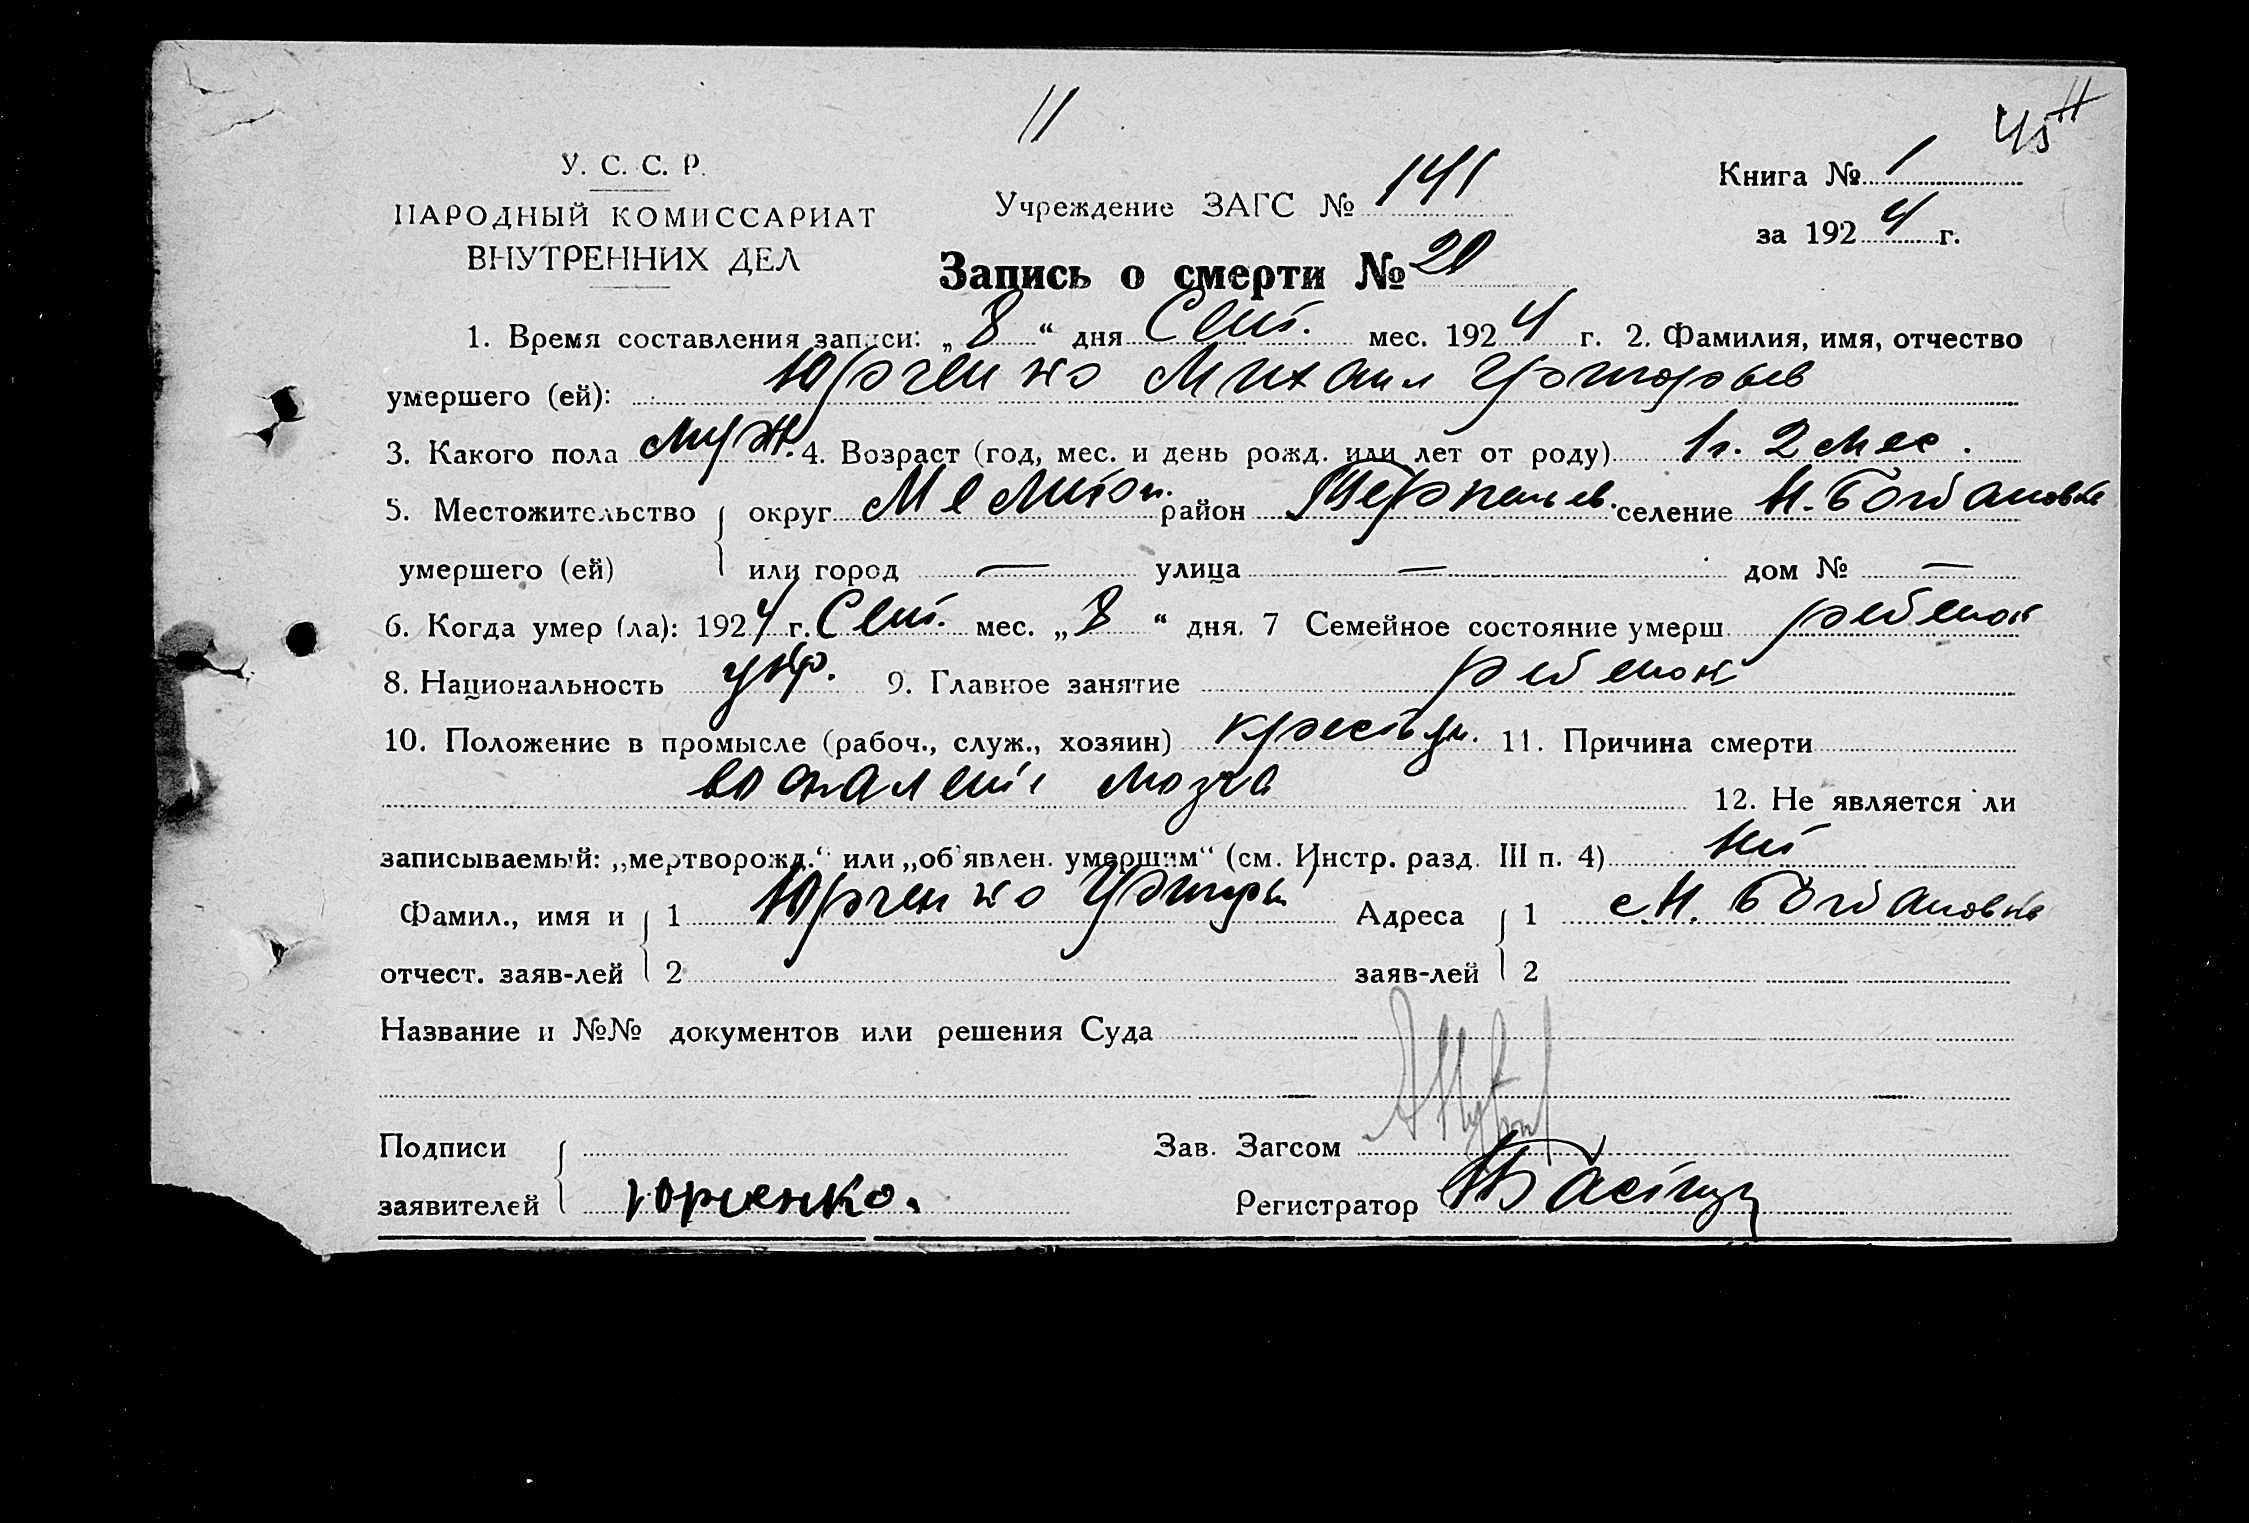 11
45
У. С. С. Р.
НАРОДНЫЙ КОМИССАРИАТ
ВНУТРЕННИХ ДЕЛ
Учреждение ЗАГС № 141
Книга № 1
за 1924 г.
Запись о смерти № 20
1. Время составления записи: „8“ дня Сент. мес. 1924 г. 2. Фамилия, имя, отчество
умершего (ей): Юрченко Михаил Григорьев
3. Какого пола муж. 4. Возраст (год, мес. и день рожд. или лет от роду) 1 г. 2 мес.
5. Местожительство округ Мелитоп. район Терпеньев. селение Н. Богдановка
умершего (ей) или город — улица — дом № —
6. Когда умер (ла): 1924 г. Сент. мес. „8“ дня. 7 Семейное состояние умерш. ребенок
8. Национальность укр. 9. Главное занятие ребенок
10. Положение в промысле (рабоч., служ., хозяин) крестьян. 11. Причина смерти
воспаление мозга 12. Не является ли
записываемый: „мертворожд.“ или „об'явлен. умершим“ (см. Инстр. разд. III п. 4) нет
Фамил., имя и 1 Юрченко Григорий Адреса 1 с Н. Богдановка
отчест. заяв-лей 2 заяв-лей 2
Название и №№ документов или решения Суда
Подписи Зав. Загсом
заявителей Юрченко. Регистратор